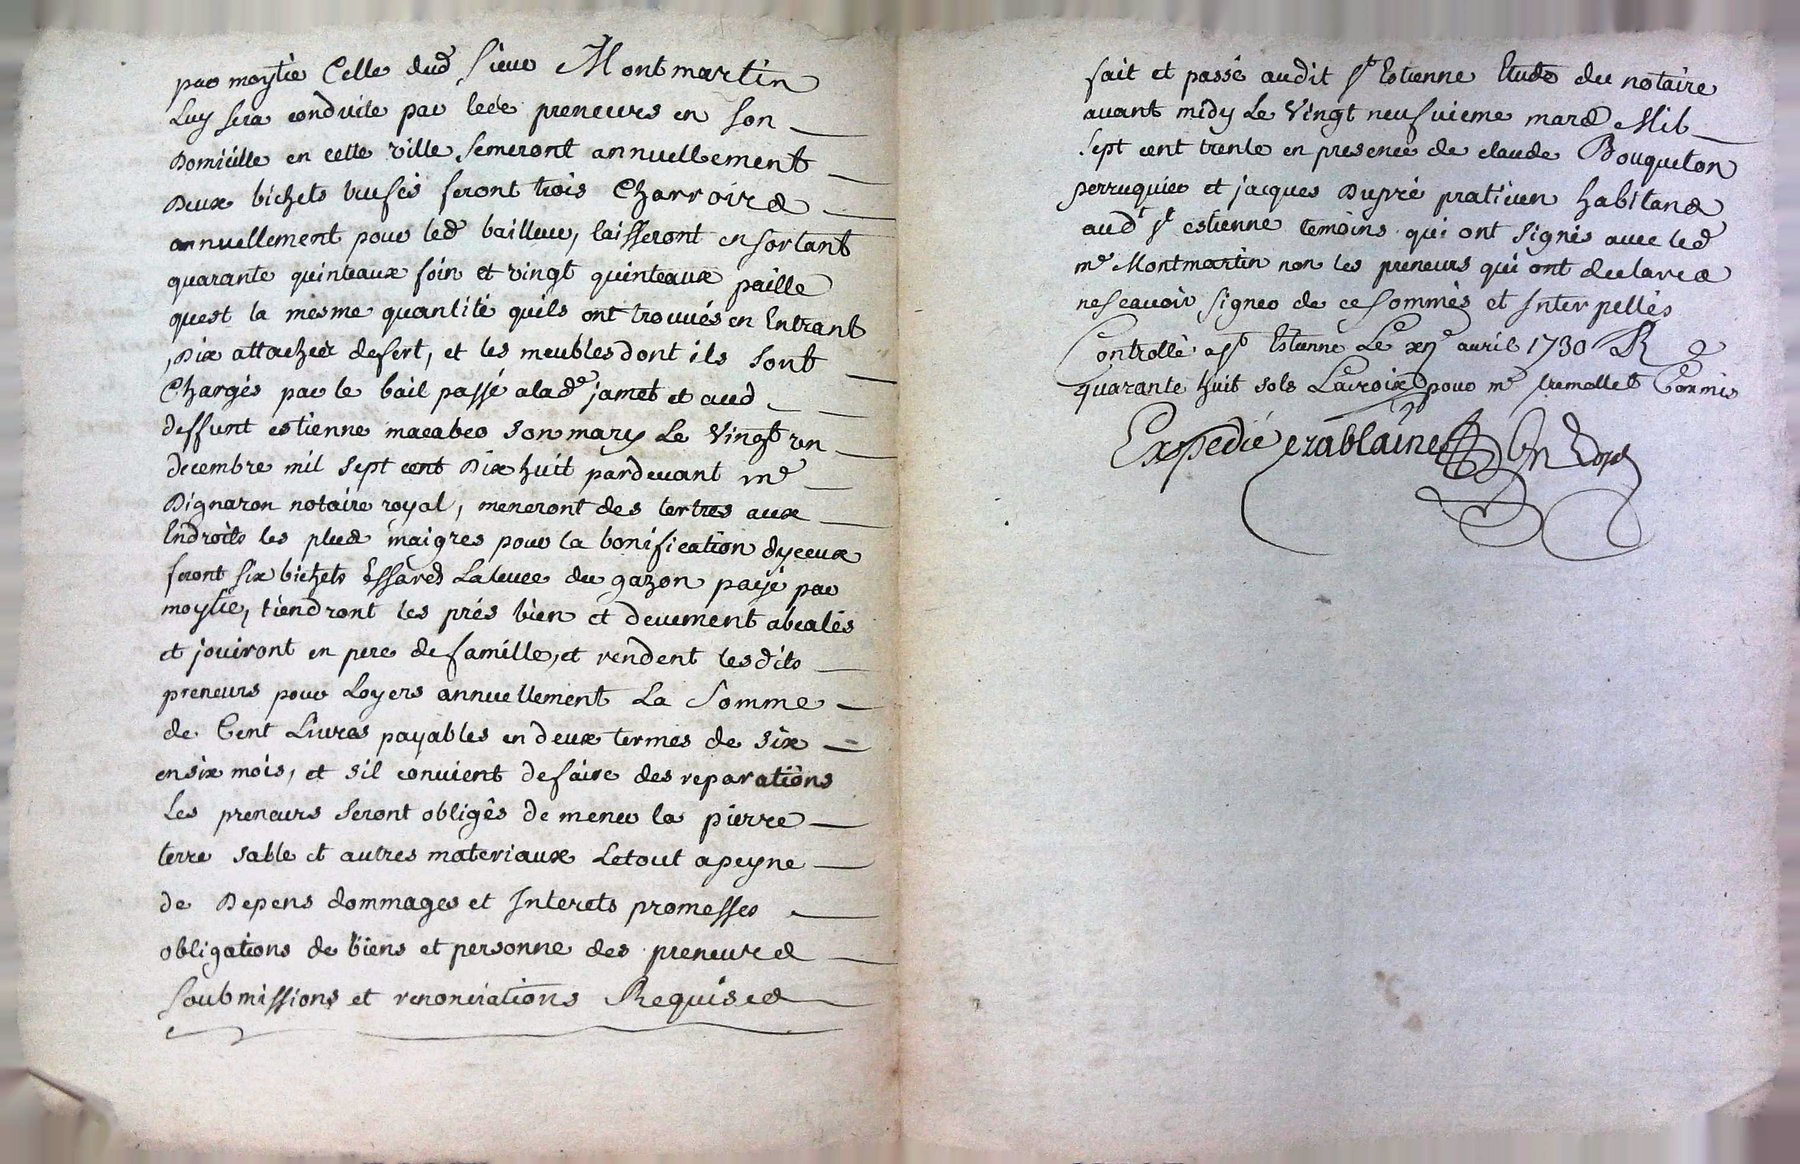 par moytié Celle dud Sieur Montmartin
Luy sera conduite par lesd preneurs en son
Domicille en cette ville semeront annuellement
Deux bichets trufes feront trois Charroirs
annuellement pour led bailleur, laisseront en sortant
quarante quinteaux foin et vingt quinteaux paille
quest la mesme quantité quils ont trouvés en Entrant
, Dix attaches defert, et les meubles dont ils sont
Chargés par le bail passé alade jamet et aud
deffunt estienne macabeo son mary Le Vingt un
decembre mil sept cent Dix huit pardevant me
Dignaron notaire royal, meneront des tertres aux
Endroits les plus maigres pour la bonification dyceux
feront six bichets Essards La levee du gazon payé par
moytié, tiendront les prés bien et deuement abealés
et jouiront en pere defamille, et rendent lesdits
preneurs pour Loyers annuellement La Somme
de Cent Livres payables en deux termes de six
en six mois, et sil convient defaire des reparations
Les preneurs seront obligés de mener la pierre
terre sable et autres materiaux Letout apeyne
de Depens dommages et Interets promesses
obligations de biens et personne des preneurs
Soubmissions et renonciations Requises
fait et passé audit St Estienne Etude du notaire
avant midy Le Vingt neufvieme mars Mil
Sept cent trente en presence de claude Bouqueton
perruquier et jacques Dupré praticien habitans
audt St estienne temoins qui ont signés avec led
me Montmartin non les preneurs qui ont declares
nescavoir signer de ce sommés et Interpellés
Controllé a St Estienne Le xne avril 1730 R
quarante huit sols Lacroix pour me tremollet Commis
Expedié crablaine